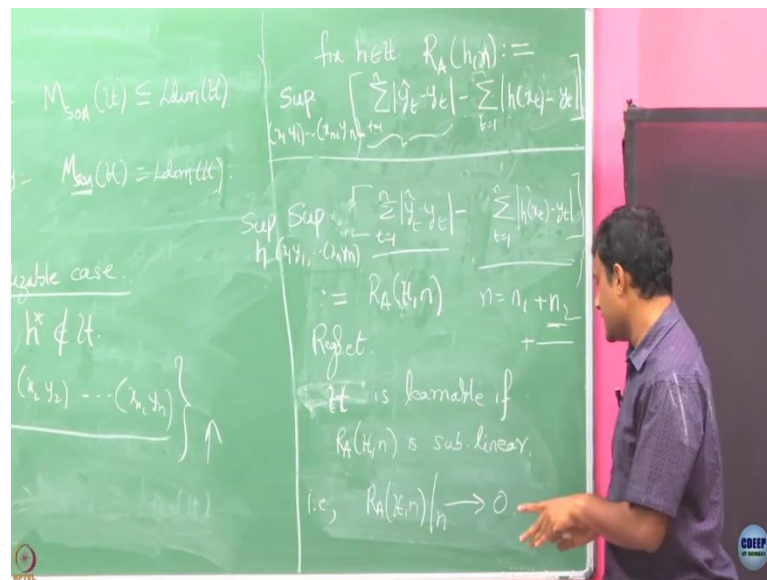 M_SOA(H) ≤ Ldim(H).
M_SOA(H) = Ldim(H).
izable case.
h* ∉ H.
(x_2 y_2) --- (x_n, y_n) } ↑
fix h∈H. R_A(h,n) :=
Sup (x_1 y_1)...(x_n, y_n) [ Σ_{t=1}^{n} |ŷ_t - y_t| - Σ_{t=1}^{n} |h(x_t) - y_t| ]
Sup h Sup (x_1 y_1, ...(x_n y_n) [ Σ_{t=1}^{n} |ŷ_t - y_t| - Σ_{t=1}^{n} |h(x_t) - y_t| ]
:= R_A(H,n) n = n_1 + n_2
+ —
Regret.
H is learnable if
R_A(H,n) is sub-linear.
i.e, R_A(H,n)/n → 0
NPTEL
CDEEP
IIT BOMBAY